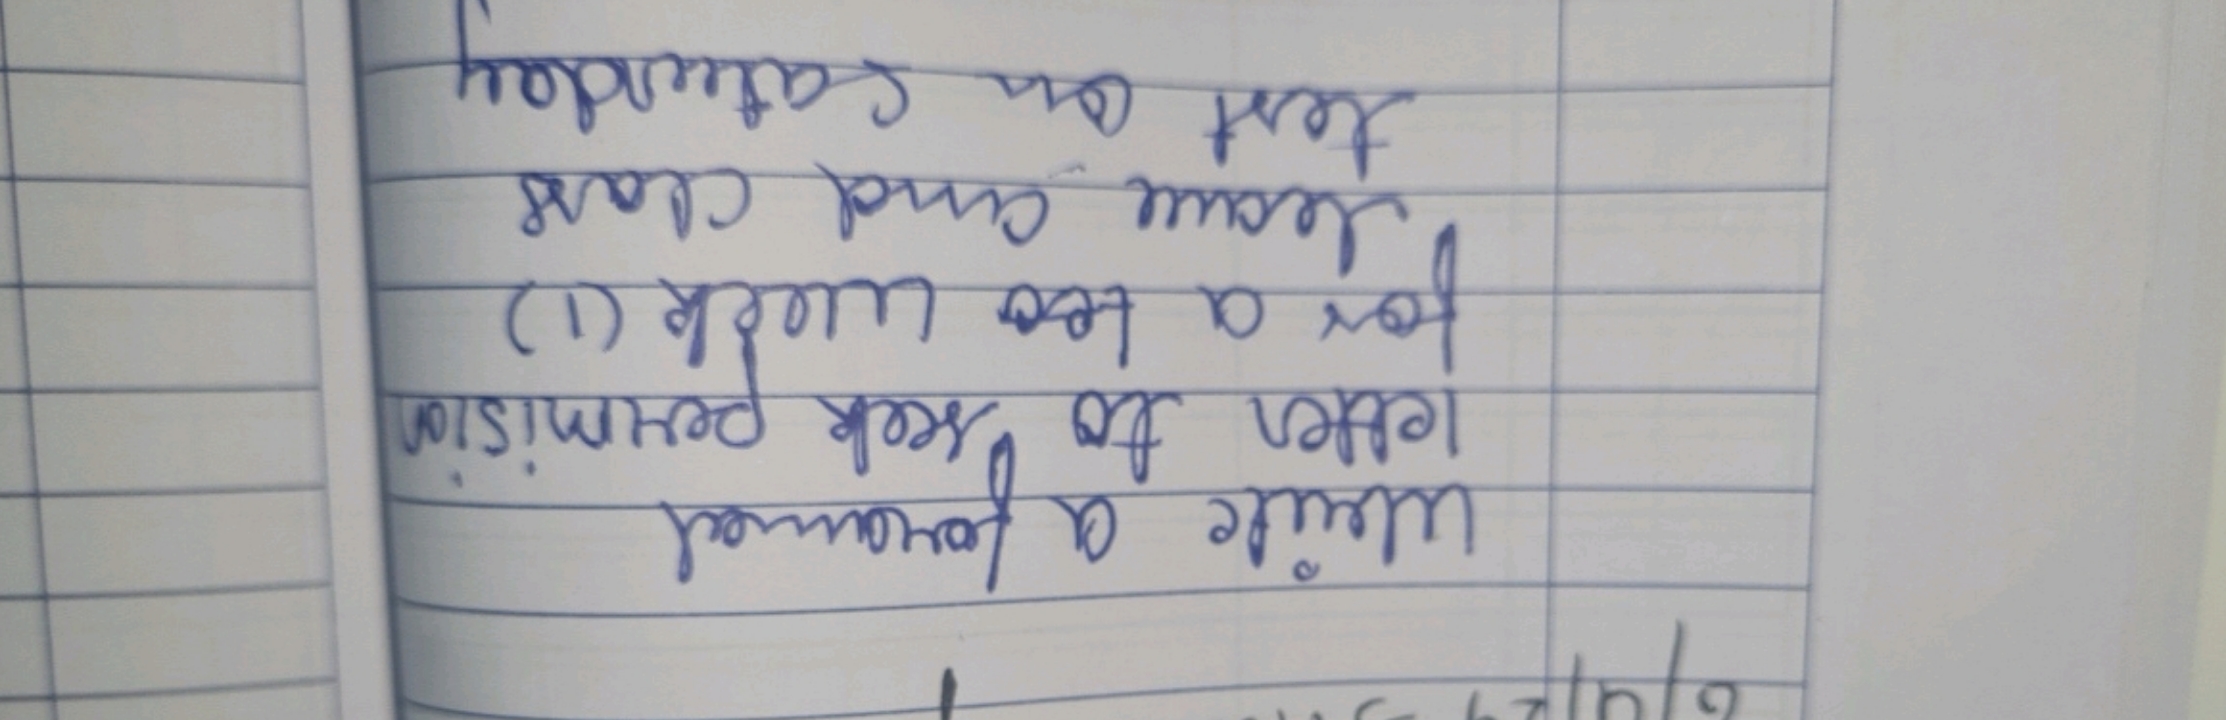 6/9/24
write a foramal
letter to seek permision
for a two week (1)
leave and class
test on Saturday